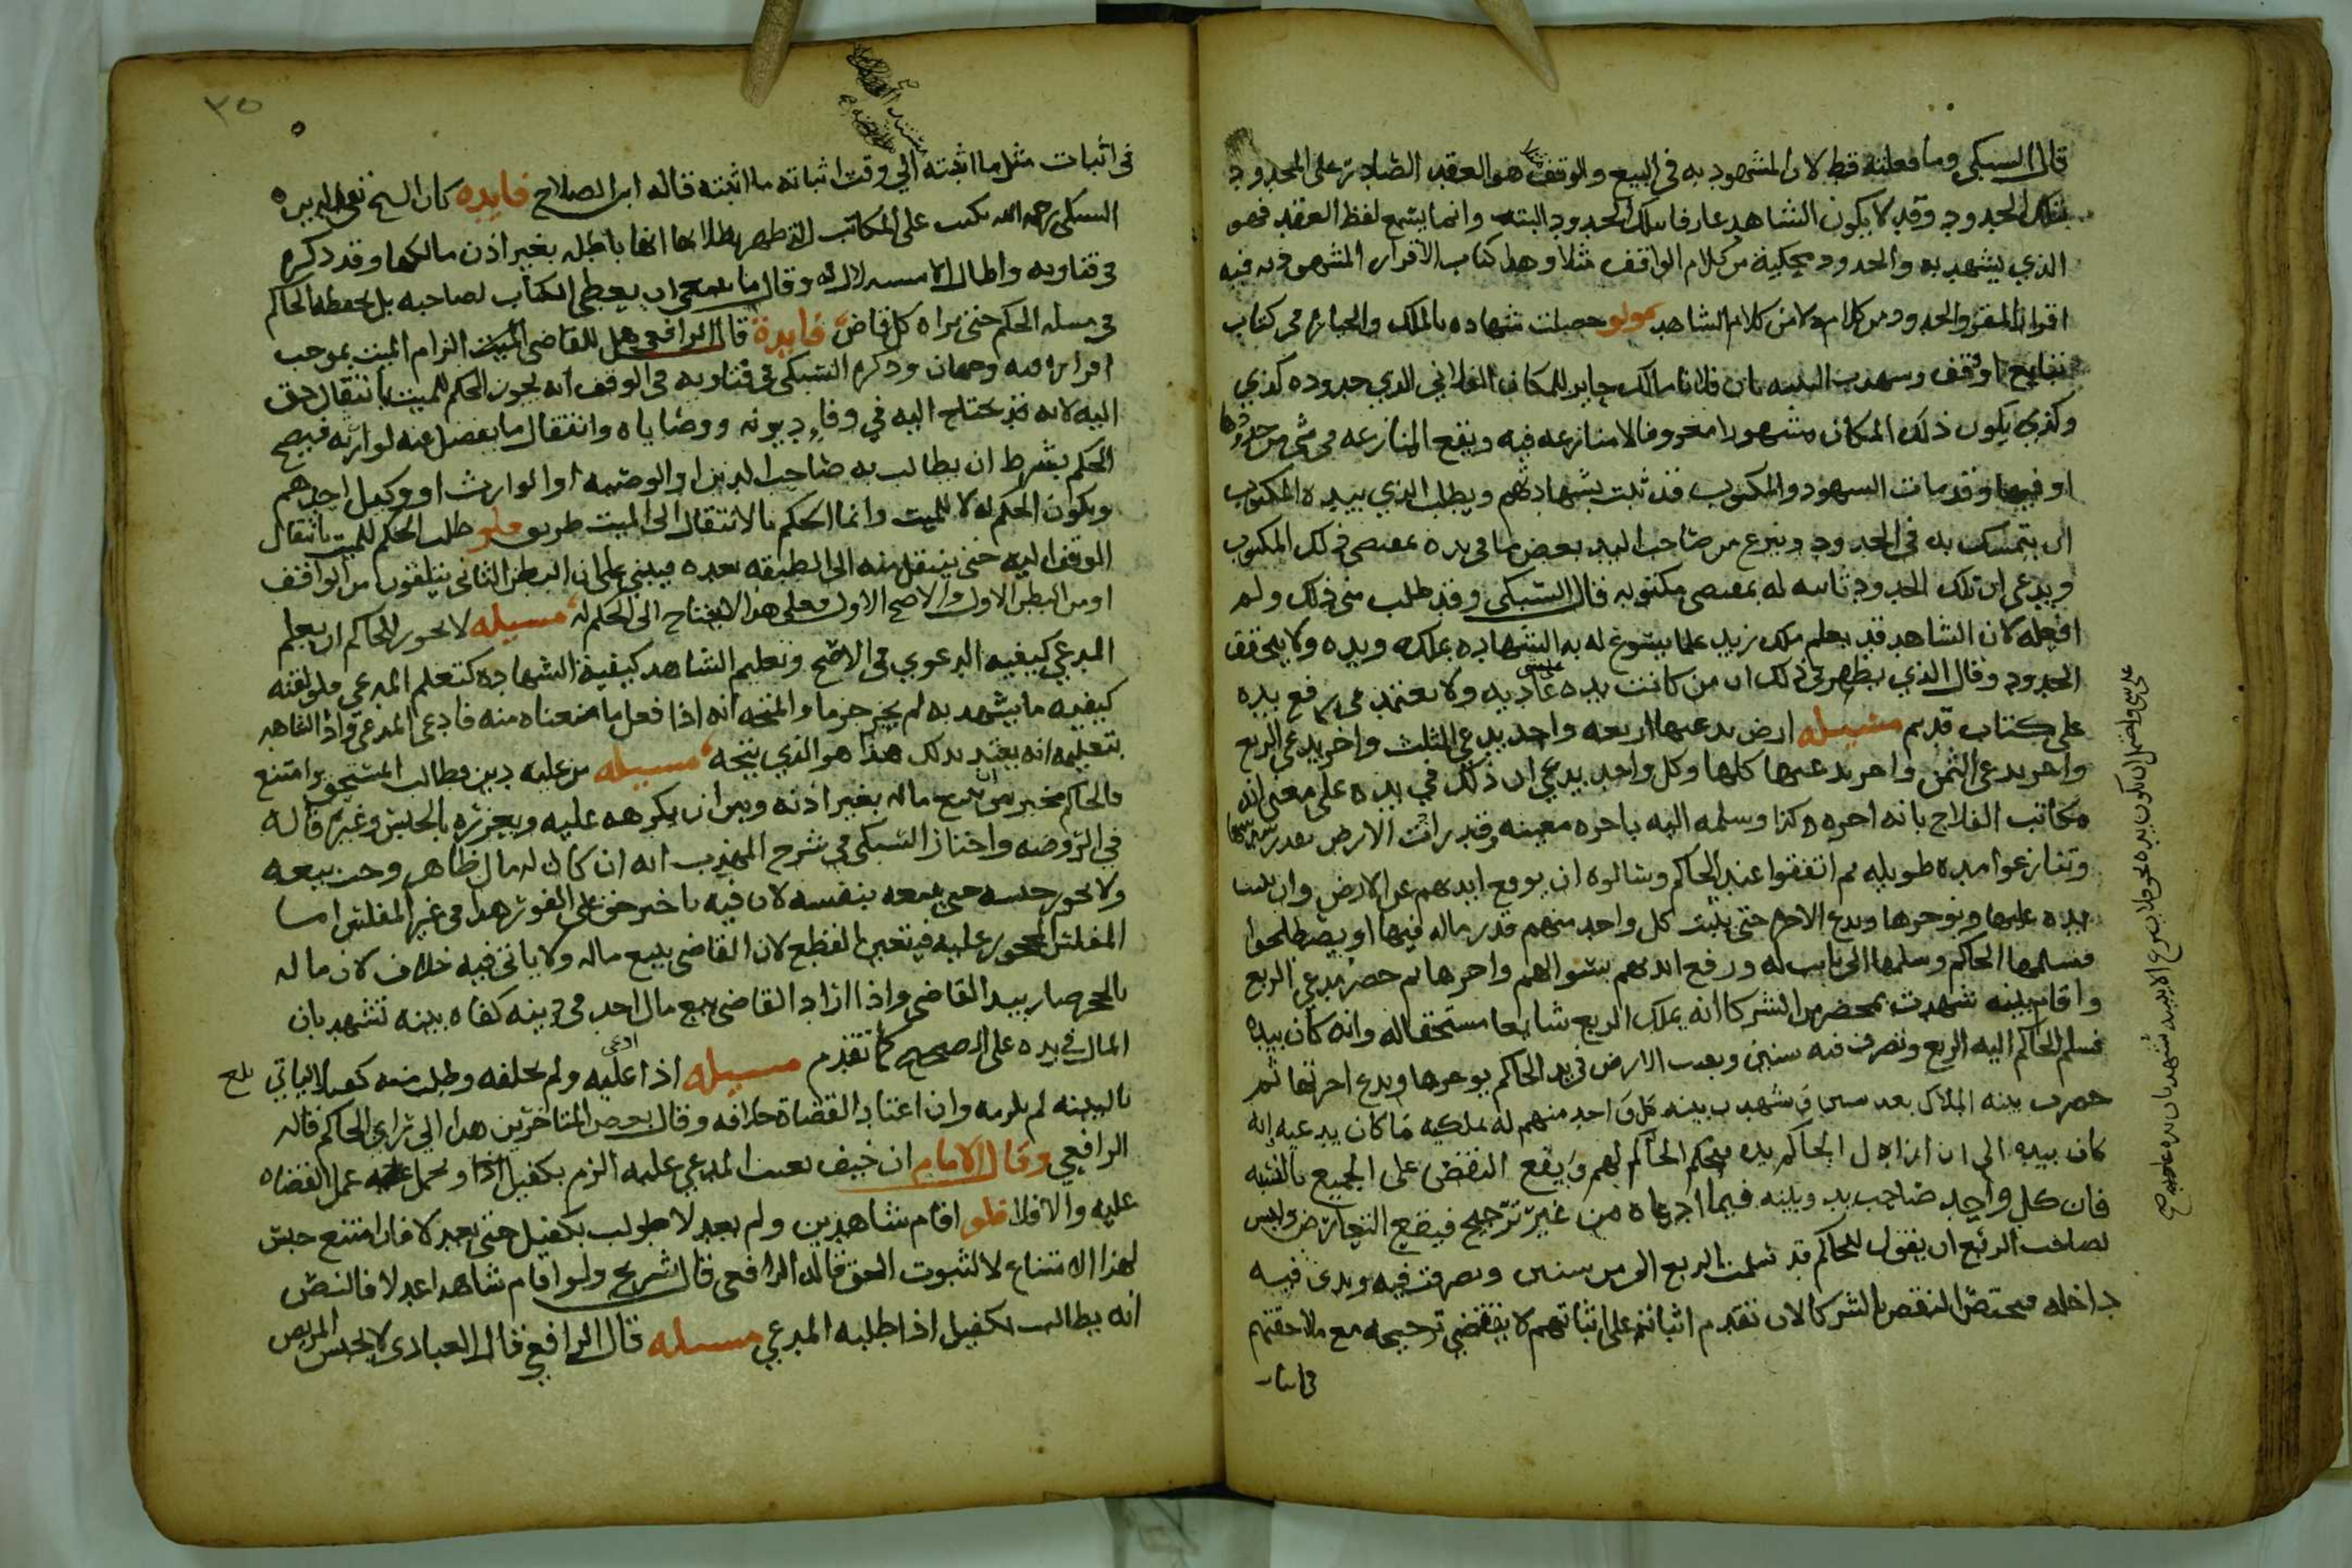 قال السبكي وما فعلته قط لان المشهود به في البيع والوقف هو العقد الصادر على المحدود
بتلك الحدود وقد لا يكون الشاهد عارفا بتلك الحدود البته وانما يسمع لفظ العقد فهو
الذي يشهد به والحدود محكية من كلام الواقف مثلا وهذا كتاب الاقرار المشهود به فيه
اقرار المقر والحدود من كلامه لا من كلام الشاهد ولو حصلت شهاده بالملك والحيازه في كتاب
تبايع او وقف وشهدت البينه بان فلانا مالك حايز للمكان الفلاني الذي حدوده كذي
وكذي يكون ذلك المكان مشهورا معروفا لا منازعه فيه ويقع المنازعه في شي من حدودها
او فيها وقد مات الشهود والمكتوب قد ثبت بشهادتهم ويطلب الذي بيده المكتوب
ان يتمسك به في الحدود وينزع من صاحب اليد بعض ما في يده بمقتضى ذلك المكتوب
ويدعي ان تلك الحدود ثابته له بمقتضى مكتوبه قال السبكي وقد طلب مني ذلك ولم
افعله لان الشاهد قد يعلم ملك زيد علما يسوغ له به الشهاده بملكه ويده ولا يحقق
الحدود وقال الذي يظهر في ذلك ان من كانت يده عاديه ولا يعتمد في رفع يده
على كتاب قديم مسيله ارض يدعيها اربعه واحد يدعي الثلث واخر يدعي الربع
واخر يدعي الثمن واخر يدعيها كلها وكل واحد يدعي ان ذلك في يده على معنى انه
مكاتب الفلاح بانه اجره كذا وسلمه اليه باجره معينه وقد رات الارض بعد
وتنازعوا مده طويله ثم اتفقوا عند الحاكم وسالوه ان يرفع ايديهم عن الارض وان يثبت
يده عليها ويوجرها ويدع الاجره حتى يثبت كل واحد منهم قدر ماله فيها او يصطلحوا
فتسلمها الحاكم وسلمها الى نايب له ورفع ايديهم بسوالهم واجرها ثم حضر مدعي الربع
واقام بينه شهدت بمحضر من الشركا انه يملك الربع شايعا مستحقا له وانه كان بيده
فسلم الحاكم اليه الربع وتصرف فيه سنين وبقيت الارض في يد الحاكم يوجرها ويدع اجرتها ثم
حضرت بينه الملاك بعد سنين وشهدت بينه كل واحد منهم له بملكيه ما كان يدعيه انه
كان بيده الى ان ازال الحاكم يده فيحكم الحاكم لهم ويقع النقض على الجميع بالنسبه
فان كل واحد صاحب يد وبينه فيما ادعاه من غير ترجيح فيقع التعارض وليس
لصاحب الربع ان يقول للحاكم قد تسلمت الربع الي من سنين وتصرفت فيه ويدي فيه
داخله فيختص النقص بالشركا لان تقدم اثباته على اثباتهم لا يقتضي ترجيحه مع ملاحقتهم
في اثبات
٣٥
في اثبات مثل ما اثبته الي وقت اثباته ما اثبته قاله ابن الصلاح فايده كان الشيخ تقي الدين
السبكي رحمه الله يكتب على المكاتب التي ظهر بطلانها انها باطله بغير اذن مالكها وقد ذكره
في فتاويه واطال الاستدلال له وقال ما ينبغي ان يعطى الكتاب لصاحبه بل يحفظه الحاكم
في مسله الحكم حتى يراه كل قاض فايدة قال الرافعي هل للقاضي الزام الميت بموجب
اقراره فيه وجهان وذكره السبكي في فتاويه في الوقف انه يجوز الحكم للميت بانتقال حق
اليه لانه قد يحتاج اليه في وفاء ديونه ووصاياه وانتقال ما يفضل عنه لوارثه فيصح
الحكم بشرط ان يطالب به صاحب الدين او الوصيه او الوارث او وكيل احدهم
ويكون الحكم له لا للميت وانما الحكم بالانتقال الى الميت طريق فلو طلب الحكم للميت بانتقال
الوقف اليه حتى ينتقل منه الى الطبقه بعده فيبني على ان البطن الثاني يتلقون من الواقف
او من البطن الاول والاصح الاول فعلى هذا لا يحتاج الى الحكم له مسيله لا يجوز للحاكم ان يعلم
المدعي كيفيه الدعوي في الاصح وتعليم الشاهد كيفية الشهادة كتعليم المدعي فلو لقنه
كيفيه ما يشهد به لم يجز جزما والمتجه انه اذا فعل ما منعناه منه فادعى المدعي واذا الشاهد
بتعليمه انه يعتد بذلك هذا هو الذي يتجه مسيله من عليه دين وطالب المستحق وامتنع
فالحاكم مخير بين ان يبيع ماله بغير اذنه وبين ان يكرهه عليه ويعزره بالحبس وغيره قاله
في الروضه واختار السبكي في شرح المهذب انه ان كان له مال ظاهر وجب بيعه
ولا يجوز حبسه حتى يبيعه بنفسه لان فيه تاخير حق على الفور هذا في غير المفلس اما
المفلس المحجور عليه فيتعين القطع لان القاضي يبيع ماله ولا ياتي فيه خلاف لان ماله
بالحجر صار بيد القاضي واذا اراد القاضي بيع مال احد في دينه كفاه بينه تشهد بان
المال في يده على الصحيح كما تقدم مسيله اذا ادعى عليه ولم يحلفه وطلب منه كفيلا لياتي
بالبينه لم يلزمه وان اعتاد القضاة خلافه وقال بعض المتاخرين هذا الي راي الحاكم قاله
الرافعي وقال الامام ان خيف تعنت المدعي عليه الزم بكفيل ويحمل عمل القضاه
عليه والا فلا فلو اقام شاهدين ولم يعدلا طولب بكفيل حتى يعدلا فان امتنع حبس
لهذا الامتناع لا لثبوت الحق قاله الرافعي قال شريح ولو اقام شاهدا عدلا فالنص
انه يطالب بكفيل اذا طلبه المدعي مسيله قال الرافعي قال العبادي لا يحبس المريض